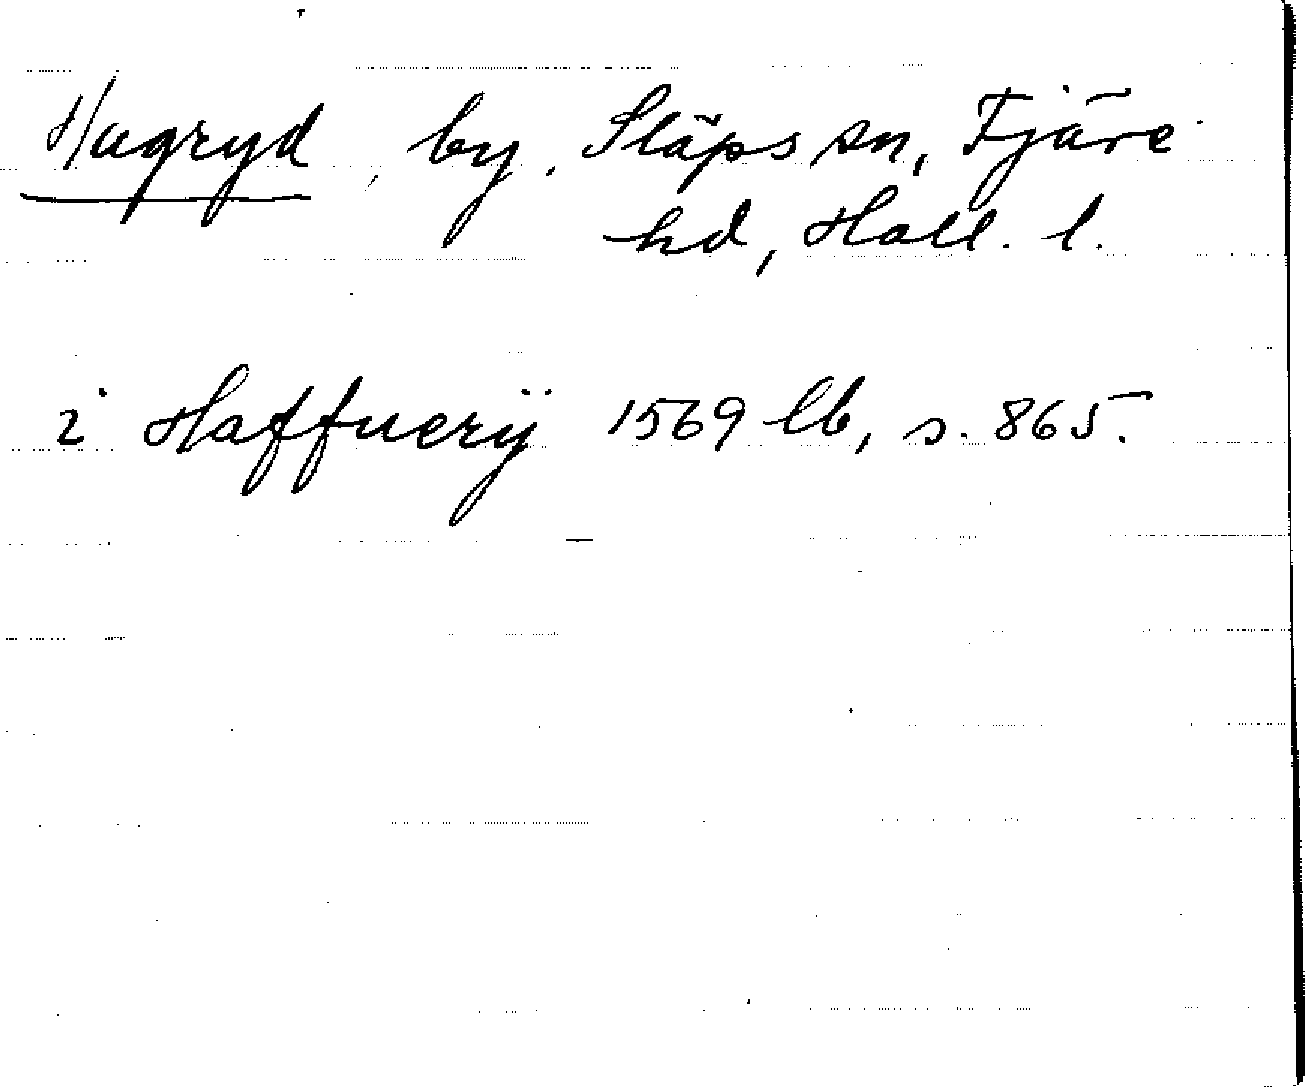 Hagryd, by. Släps sn, Fjäre
hd, Hall. l.
i Haffuerÿ 1569 lb, s. 865.